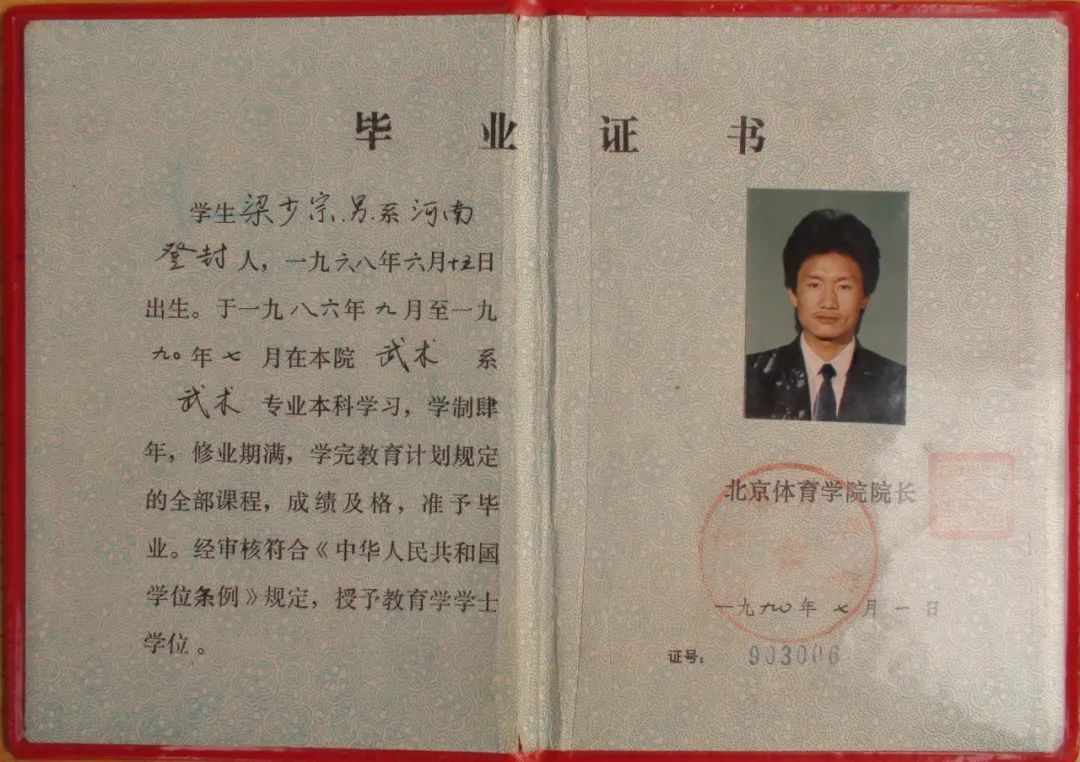 毕业证书
学生梁少宗,男,系河南
登封人，一九六八年六月十五日
出生。于一九八六年九月至一九
九〇年七月在本院武术系
武术专业本科学习，学制肆
年，修业期满，学完教育计划规定
的全部课程，成绩及格，准予毕
业。经审核符合《中华人民共和国
学位条例》规定，授予教育学学士
学位。
北京体育学院院长
一九九〇年七月一日
证号：903006